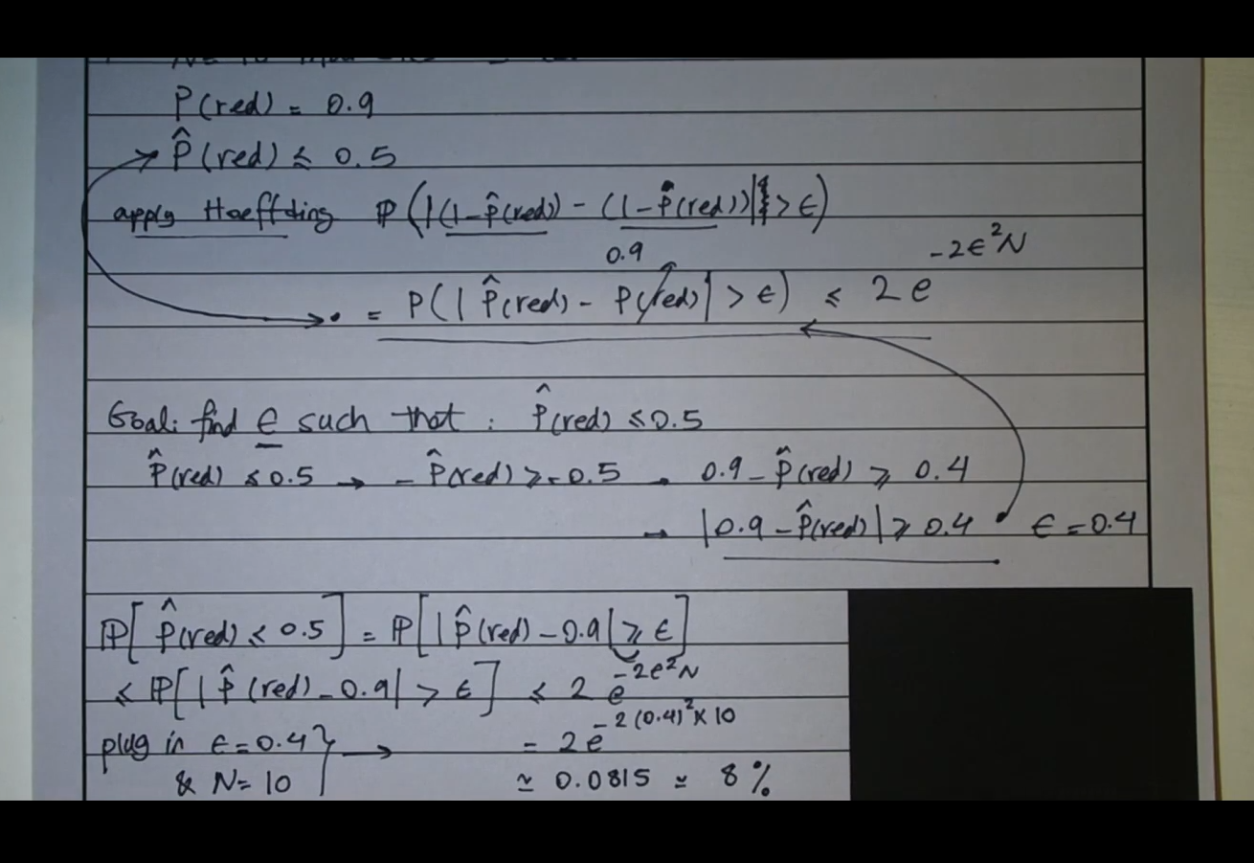 P(red) = 0.9
P̂(red) ≤ 0.5
apply Hoeffding ℙ(|(1-P̂(red)) - (1-P(red))| > ϵ)
0.9
= P(|P̂(red) - P(red)| > ϵ) ≤ 2e^{-2ϵ²N}
Goal: find ϵ such that : P̂(red) ≤ 0.5
P̂(red) ≤ 0.5 → -P̂(red) ≥ -0.5 → 0.9 - P̂(red) ≥ 0.4
→ |0.9 - P̂(red)| ≥ 0.4 ϵ = 0.4
ℙ[P̂(red) ≤ 0.5] = ℙ[|P̂(red) - 0.9| ≥ ϵ]
≤ ℙ[|P̂(red) - 0.9| > ϵ] ≤ 2e^{-2ϵ²N}
plug in ϵ = 0.4 } → = 2e^{-2(0.4)²×10}
& N = 10 ≃ 0.0815 ≃ 8%